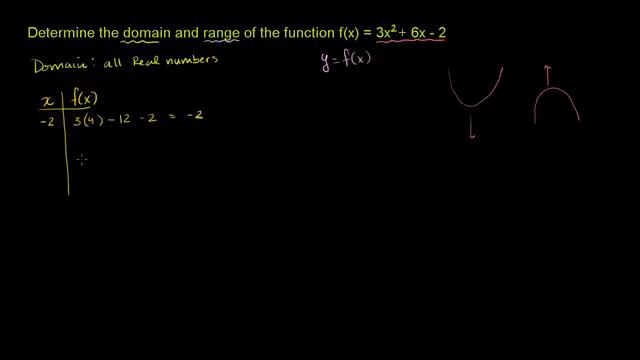 Determine the domain and range of the function f(x) = 3x² + 6x - 2
Domain: all Real numbers
y = f(x)
x f(x)
-2 3(4) - 12 - 2 = -2